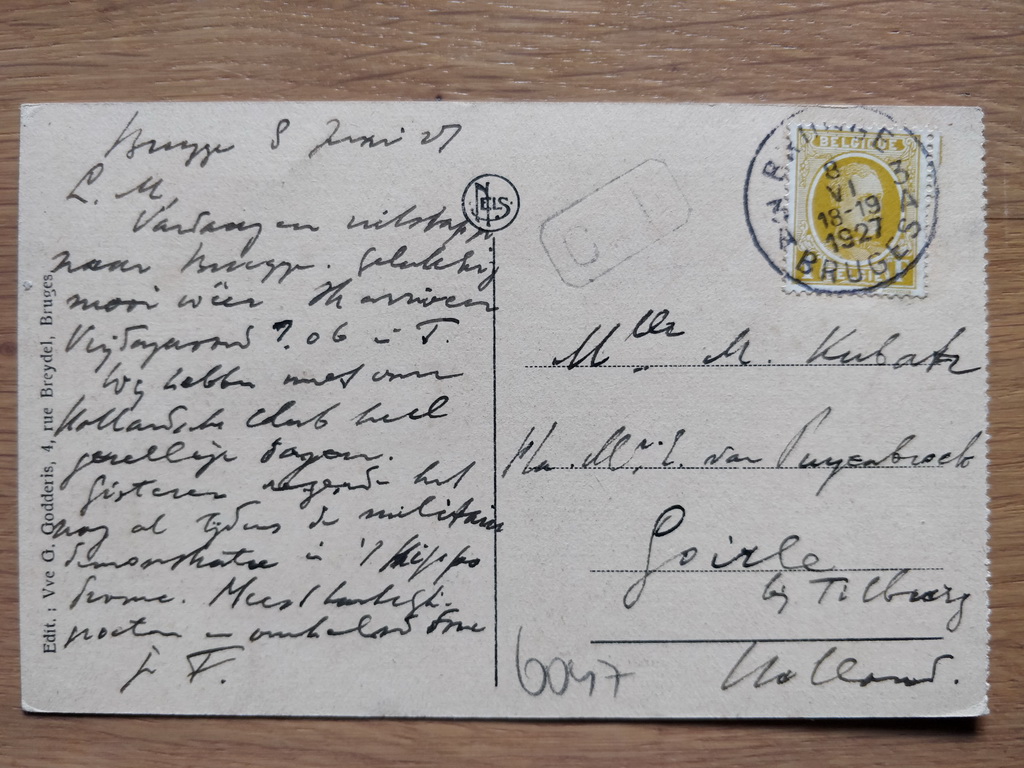 Brugge 8 Juni 27
L. M,
Vandaag een uitstapje
naar Brugge. Gelukkig
mooi weer. Ik arriveer
Vrijdagavond 7.06 in T.
Wij hebben met onze
Hollandsche club heel
gezellige dagen.
Gisteren regende het
nog al tijdens de militaire
demonstratie in 't Hippo
drome. Meest hartelijk
groeten en omhelsd door
je F.
Edit.: Vve G. Godderis, 4, rue Breydel, Bruges
NELS
BRUGGE
3A 3A
8
VI
18-19
1927
BRUGES
BELGIË
BELGIQUE
Mlle M. Kubatz
p/a. Mr. E. van Puyenbroek
Goirle
bij Tilburg
Holland.
6047